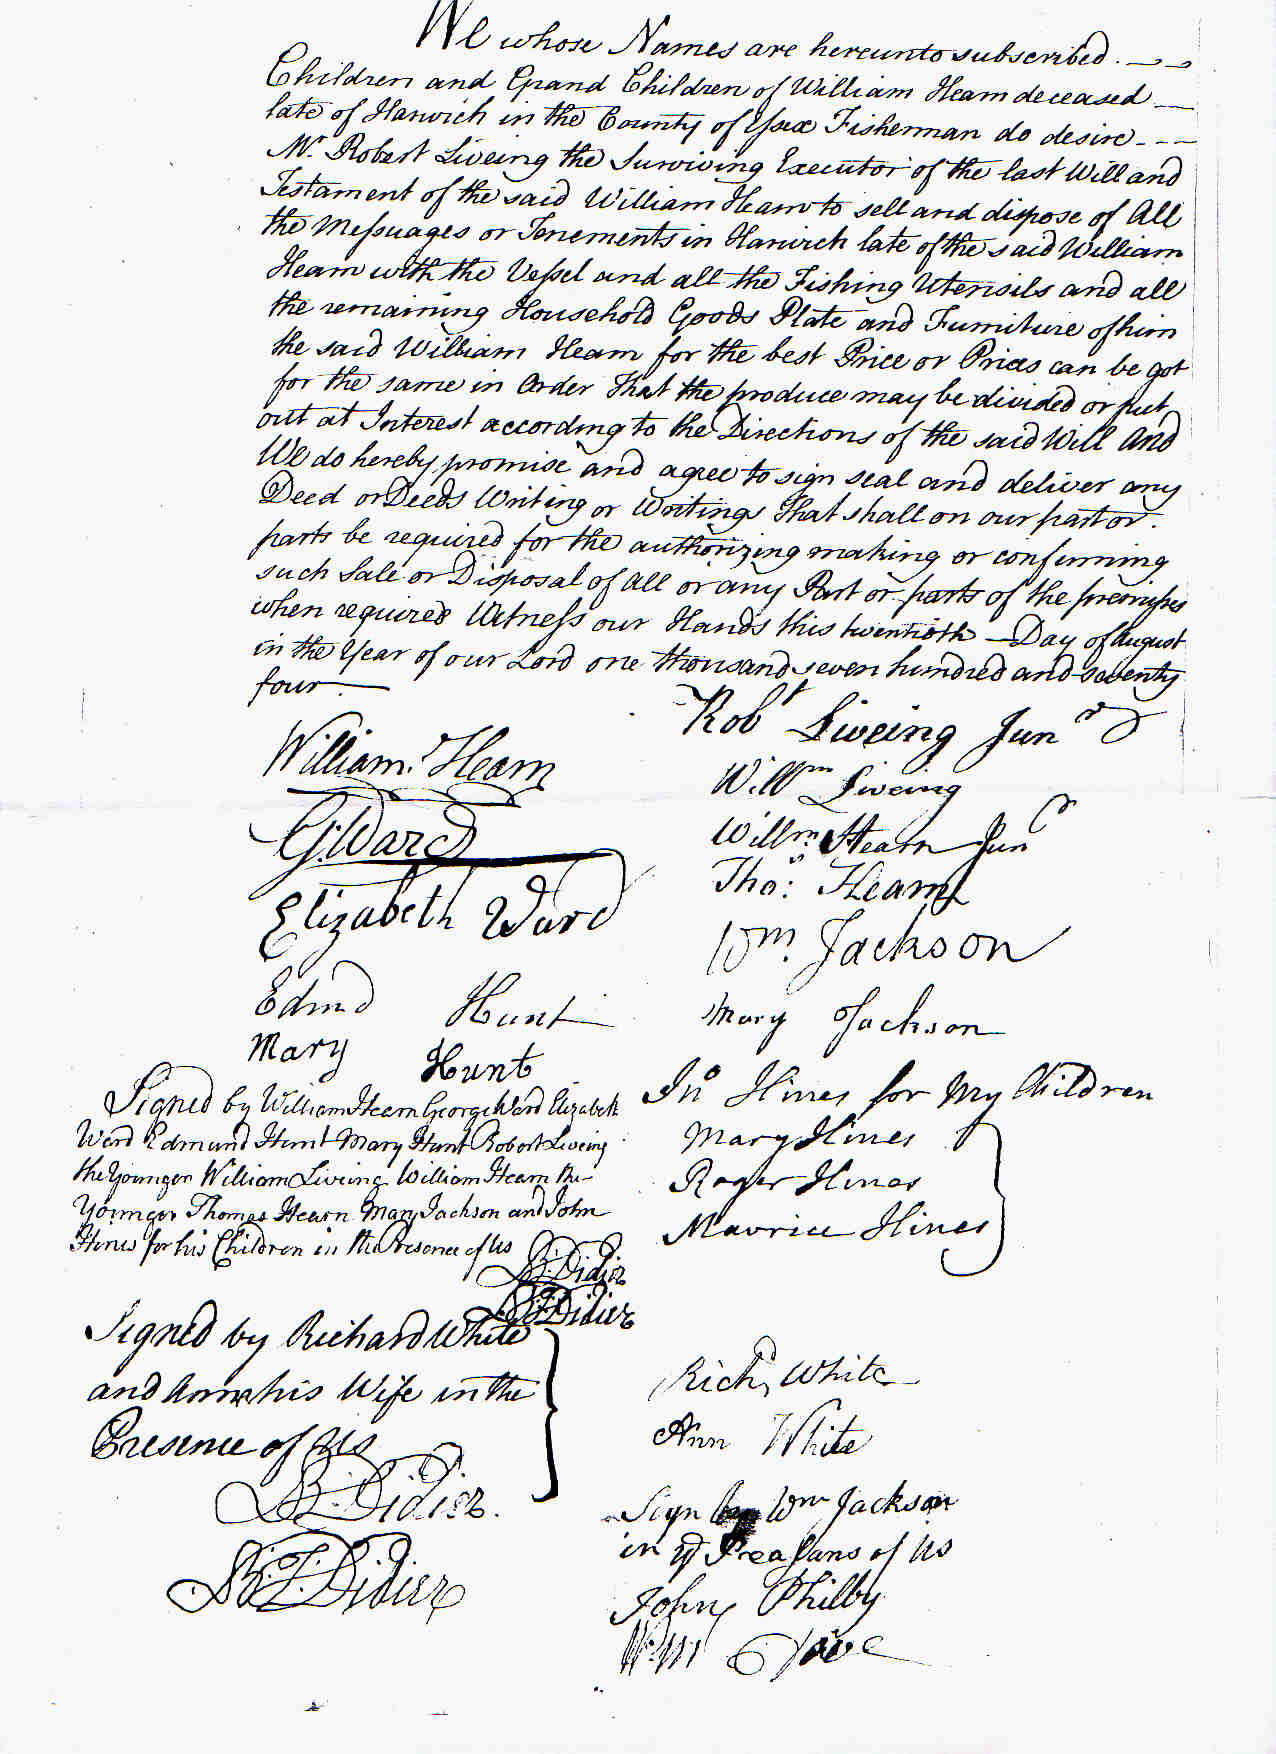 We whose Names are hereunto subscribed
Children and Grand Children of William Hearn deceased
late of Harwich in the County of Essex Fisherman do desire
Mr. Robert Liveing the Surviving Executor of the last Will and
Testament of the said William Hearn to sell and dispose of All
the Messuages or Tenements in Harwich late of the said William
Hearn with the Vessel and all the Fishing Utensils and all
the remaining Household Goods Plate and Furniture of him
the said William Hearn for the best Price or Prices can be got
for the same in Order That the produce may be divided or put
out at Interest according to the Directions of the said Will And
We do hereby promise and agree to sign seal and deliver any
Deed or Deeds Writing or Writings That shall on our part or
parts be required for the authorizing making or confirming
such Sale or Disposal of all or any Part or parts of the premisses
when required Witness our Hands this twentieth Day of August
in the Year of our Lord one thousand seven hundred and seventy
four
William Hearn
G: Ward
Elizabeth Ward
Edmd Hunt
Mary Hunt
Robt Liveing Junr
Willm Liveing
Willm Hearn Junr
Thos: Hearn
Wm. Jackson
Mary Jackson
Jno Hines for My Children
Mary Hines
Roger Hines
Maurice Hines
Signed by William Hearn George Ward Elizabeth
Ward Edmund Hunt Mary Hunt Robert Liveing
the Younger William Liveing William Hearn the
Younger Thomas Hearn Mary Jackson and John
Hines for his Children in the Presence of Us
B: Didier
B: F: Didier
Signed by Richard White
and Ann his Wife in the
Presence of Us
B: Didier.
B: F: Didier
Richd White
Ann White
Sign by Wm Jackson
in ye Preasans of us
John Philby
Wm